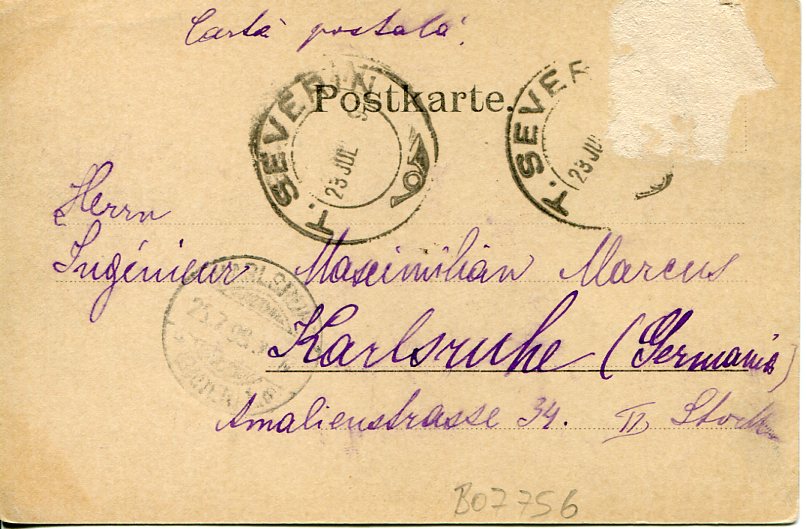 Cartă postală.
Postkarte.
T. SEVERIN
23 JUL 9
T. SEVER
23 JUL
Herrn
Ingénieur Maximilian Marcus
Karlsruhe (Germania)
Amalienstrasse 34. II Stock
B07756